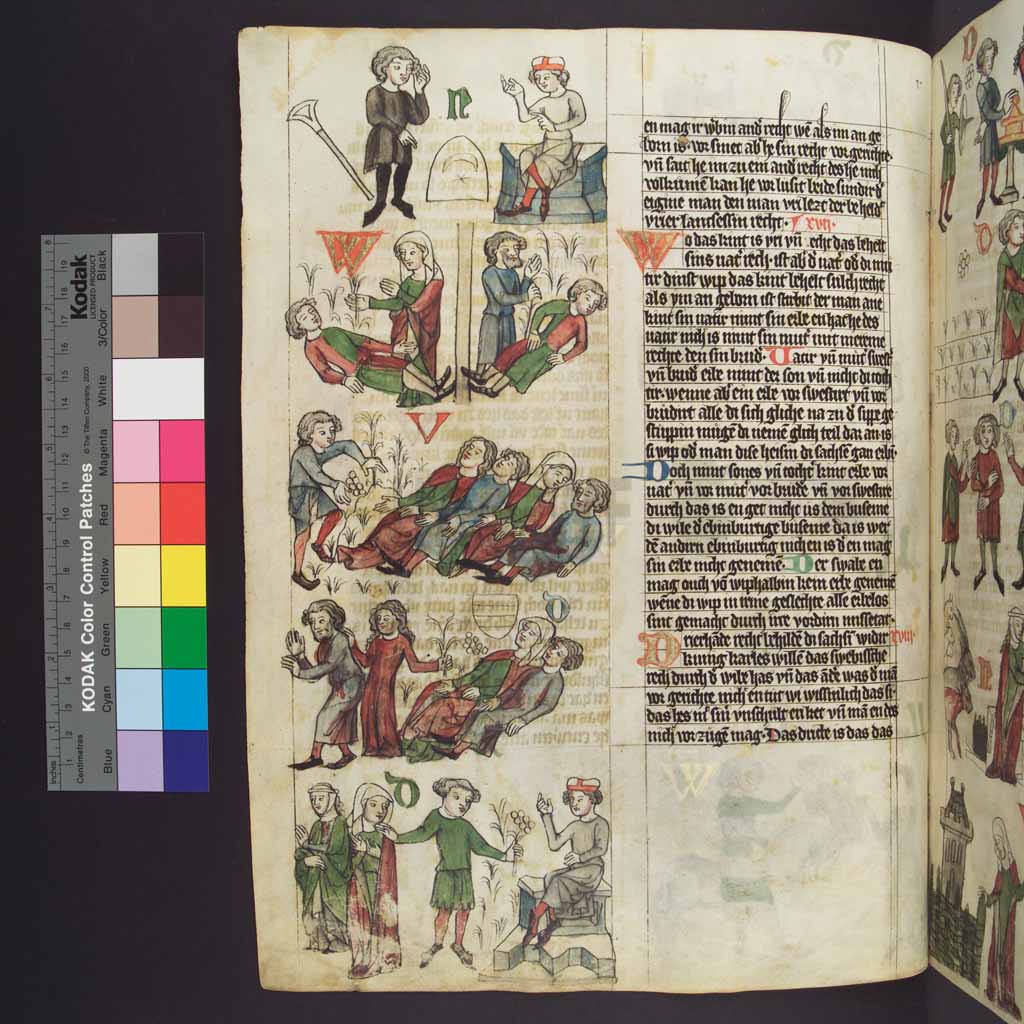 KODAK Color Control Patches
© The Tiffen Company, 2000
Kodak
LICENSED PRODUCT
Inches
Centimetres
Blue
Cyan
Green
Yellow
Red
Magenta
White
3/Color
Black
N
W
V
D
D
en mag ir wbin and recht wē als im an ge
born is vor sinet ab he sin recht vor gerichte
vn̄ sait he im zu ein and recht des he nich
volkumē kan he vor lusit beide
eigine man den man vri lezt der beheld
vrier lantsessin recht xvi
Wo das kint is vri vn̄ echt das behelt
sins vat recht ist ab d vat od di mu
tir dinst wip das kint behelt sulch recht
als ym an geborn ist stirbit der man ane
kint sin vatir nimt sin erbe en hat he des
vatir nich is nimt sin mut mit mereme
rechte den sin brud Vatir vn̄ mut swest
vn̄ brud erbe nimt der son vn̄ nicht di toch
tir wenne ab ein erbe vor swestir vn̄ vor
brudir alle di sich gliche na zu d sippe ge
stuppin mugē di nemē glich teil dar an is
si wip od man dise heisin di sachsē gan erbn
Doch nimt sones vn̄ tocht kint erbe vor
vat vn̄ vor mut vor brud vn̄ vor swestir
durch das is en get nicht us dem buseme
di wile d ebinburtige buseme da is wer
dē andirn ebinburtig nich en is d en mag
sin erbe nicht genemē Der swabe en
mag ouch vō wiphalbin kein erbe genemē
wēne di wip in irme geslechte alle erbelos
sint gemacht durch irre vordirn missetat
Drierhāde recht behilde di sachsī widir xviii
kunig karles willē das swebische
recht durch d wibe has vn̄ das ādē was d mā
vor gerichte nich en tut wi wissinlich das si
das hes mit sin vnschult en ket vn̄ mā en des
nich vor zugē mag Das dritte is das das